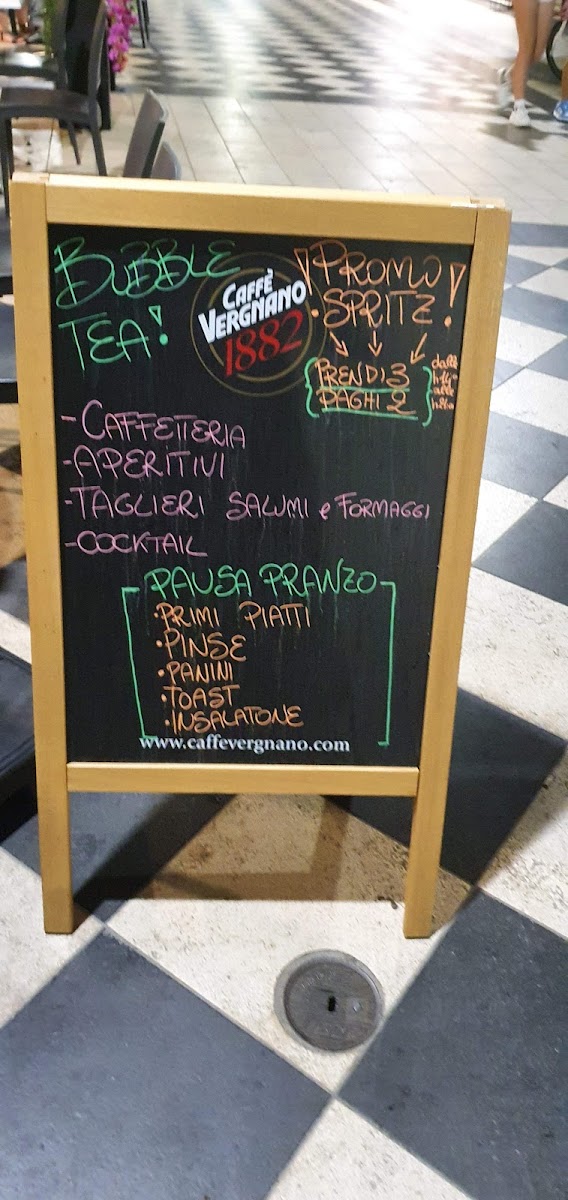 BUBBLE
TEA!
CAFFÈ
VERGNANO
1882
!PROMO!
SPRITZ
PRENDI 3
PAGHI 2
dalle
alle
-CAFFETTERIA
-APERITIVI
-TAGLIERI SALUMI e FORMAGGI
-COCKTAIL
PAUSA PRANZO
•PRIMI PIATTI
•PINSE
•PANINI
•TOAST
•INSALATONE
www.caffevergnano.com